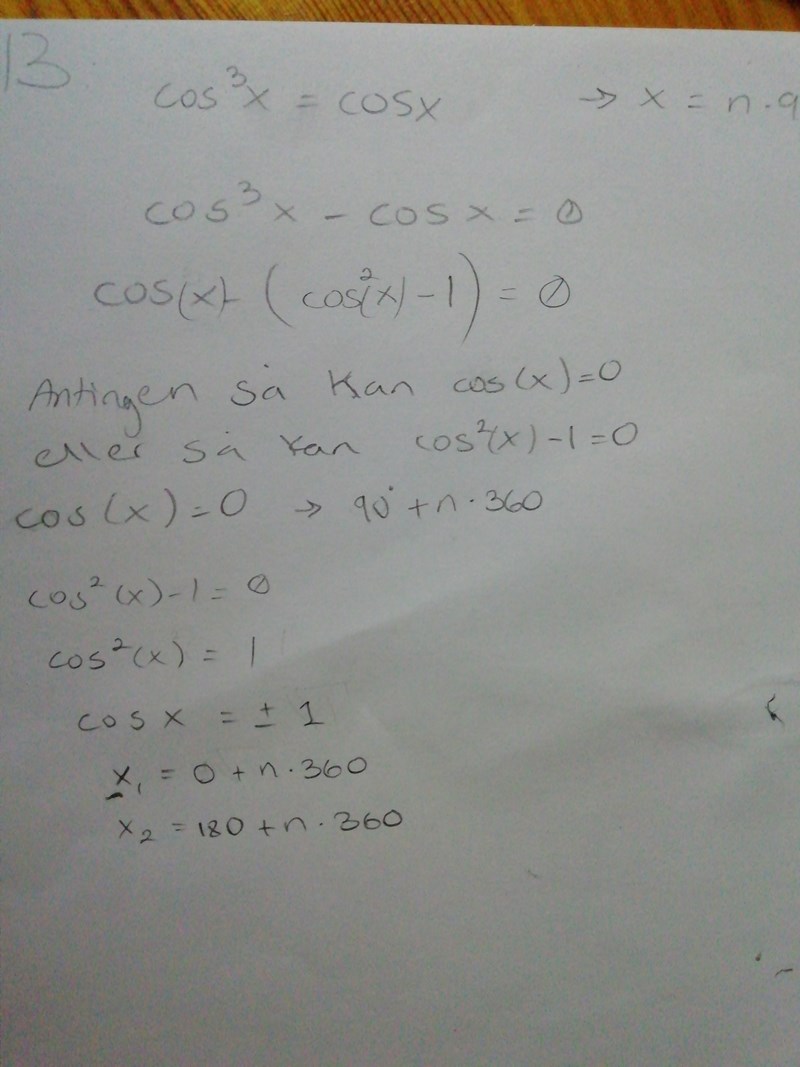 13
cos³x = cosx → x = n·9
cos³x - cos x = 0
cos(x) (cos²(x) - 1) = 0
Antingen så kan cos(x)=0
eller så kan cos²(x)-1=0
cos(x)=0 → 90°+n·360
cos²(x)-1=0
cos²(x) = 1
cos x = ± 1
x₁ = 0 + n·360
x₂ = 180 + n·360